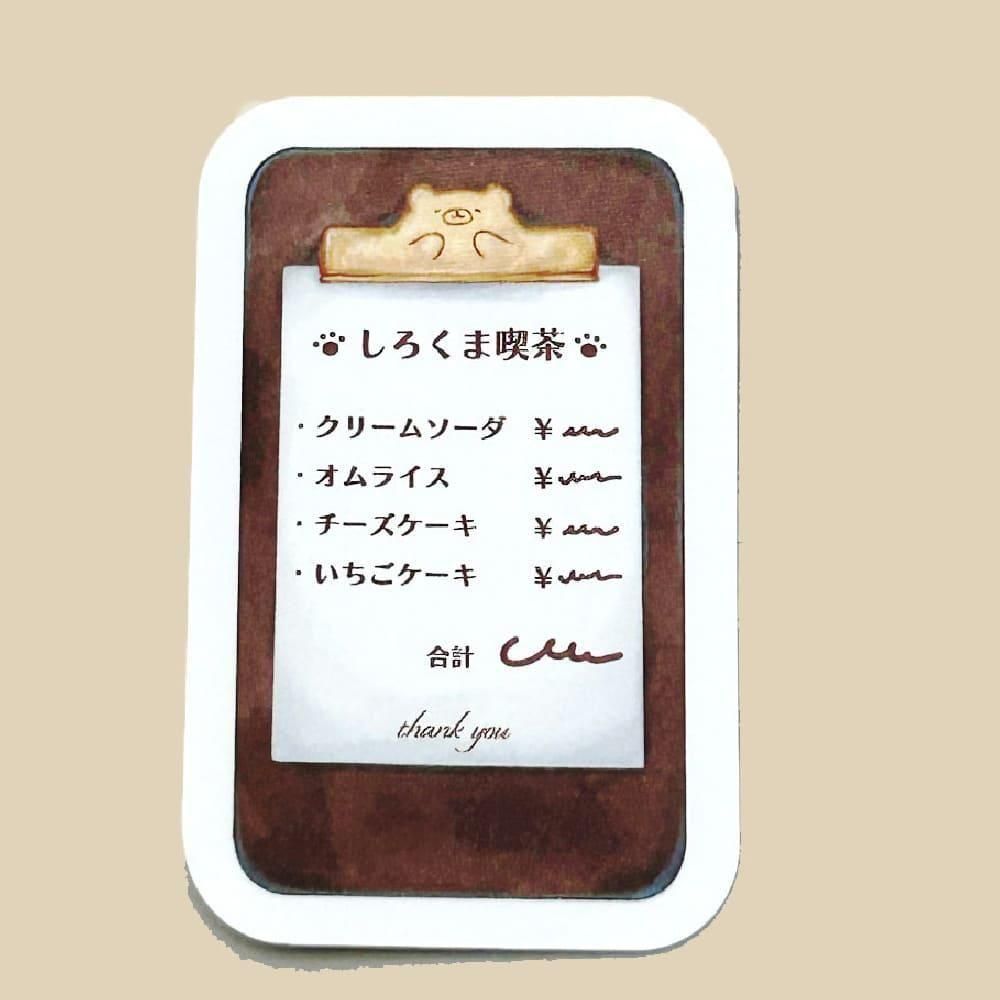 しろくま喫茶
・クリームソーダ ¥
・オムライス ¥
・チーズケーキ ¥
・いちごケーキ ¥
合計
thank you